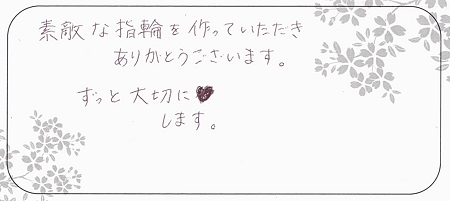 素敵な指輪を作っていただき
ありがとうございます。
ずっと大切に♥
します。